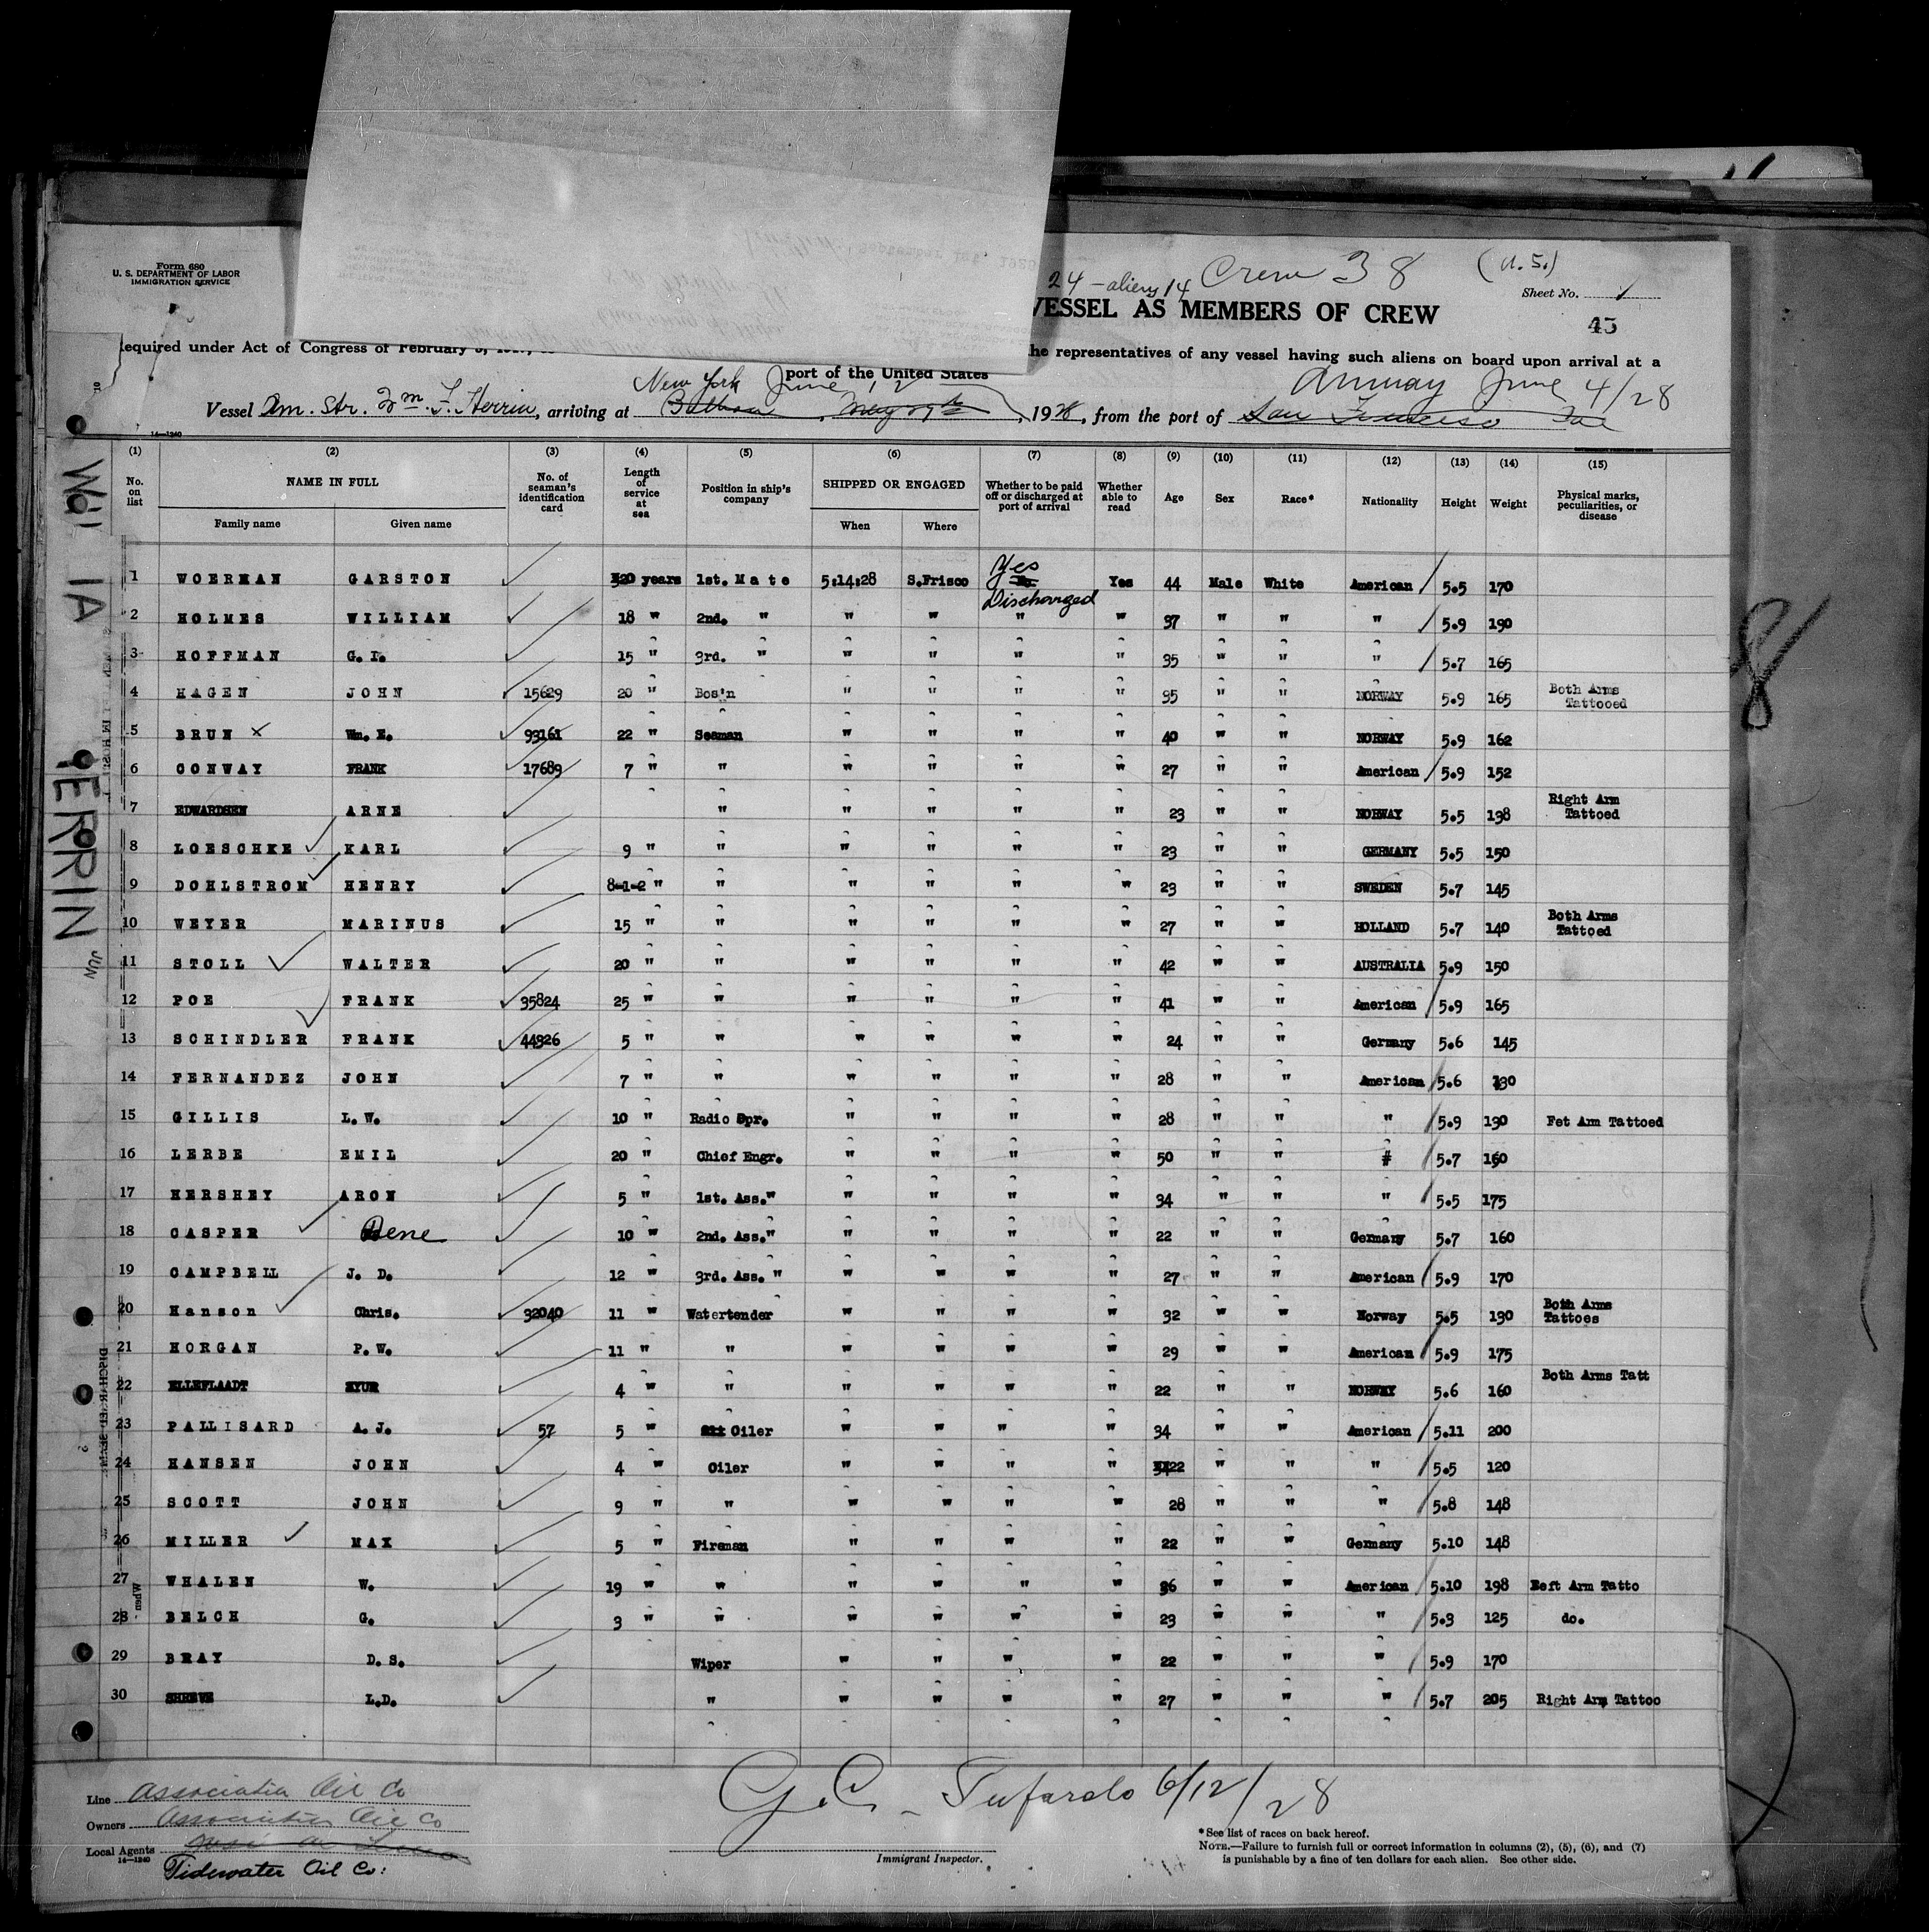 Form 680
U. S. DEPARTMENT OF LABOR
IMMIGRATION SERVICE
24 - aliens 14 Crew 38 (U.S.)
Sheet No. 1
VESSEL AS MEMBERS OF CREW
45
Required under Act of Congress of February 5, the representatives of any vessel having such aliens on board upon arrival at a
port of the United States
New York June 12 June 4/28
Vessel Am. Str. Wm. F. Herrin, arriving at Balboa, May 29th, 1928, from the port of San Francisco
14—1240
(1) (2) (3) (4) (5) (6) (7) (8) (9) (10) (11) (12) (13) (14) (15)
No. on list NAME IN FULL No. of seaman's identification card Length of service at sea Position in ship's company SHIPPED OR ENGAGED Whether to be paid off or discharged at port of arrival Whether able to read Age Sex Race* Nationality Height Weight Physical marks, peculiarities, or disease
Family name Given name When Where
Yes
1 WOERMAN GARSTON 20 years 1st. Mate 5:14:28 S.Frisco No. Yes 44 Male White American 5.5 170
Discharged
2 HOLMES WILLIAM 18 " 2nd. " " " " " 37 " " " 5.9 190
3 HOFFMAN G. I. 15 " 3rd. " " " " " 35 " " " 5.7 165
4 HAGEN JOHN 15629 20 " Bos'n " " " " 35 " " NORWAY 5.9 165 Both Arms Tattooed
5 BRUN x Wm. E. 93161 22 " Seaman " " " " 40 " " NORWAY 5.9 162
6 CONWAY FRANK 17689 7 " " " " " " 27 " " American 5.9 152
7 EDWARDSEN ARNE " " " " " 23 " " NORWAY 5.5 138 Right Arm Tattoed
8 LOESCHKE KARL 9 " " " " " " 23 " " GERMANY 5.5 150
9 DOHLSTROM HENRY 8-1-2 " " " " " " 23 " " SWEDEN 5.7 145
10 WEYER MARINUS 15 " " " " " " 27 " " HOLLAND 5.7 140 Both Arms Tattoed
11 STOLL WALTER 20 " " " " " " 42 " " AUSTRALIA 5.9 150
12 POE FRANK 95824 25 " " " " " " 41 " " American 5.9 165
13 SCHINDLER FRANK 44926 5 " " " " " " 24 " " Germany 5.6 145
14 FERNANDEZ JOHN 7 " " " " " " 28 " " American 5.6 130
15 GILLIS L. W. 10 " Radio Opr. " " " " 28 " " " 5.9 190 Fet Arm Tattoed
16 LERBE EMIL 20 " Chief Engr. " " " " 50 " " # 5.7 160
17 HERSHEY ARON 5 " 1st. Ass." " " " " 34 " " " 5.5 175
18 CASPER Dene 10 " 2nd. Ass." " " " " 22 " " Germany 5.7 160
19 CAMPBELL J. D. 12 " 3rd. Ass. " " " " " 27 " " American 5.9 170
20 Hanson Chris. 32040 11 " Watertender " " " " 32 " " Norway 5.5 190 Both Arms Tattoes
21 HORGAN P. W. 11 " " " " " " 29 " " American 5.9 175
22 ELLEFLAADT EYUR 4 " " " " " " 22 " " NORWAY 5.6 160 Both Arms Tatt
23 PALLISARD A. J. 57 5 " Oiler " " " " 34 " " American 5.11 200
24 HANSEN JOHN 4 " Oiler " " " " 22 " " " 5.5 120
25 SCOTT JOHN 9 " " " " " " 28 " " " 5.8 148
26 MILLER MAX 5 " Fireman " " " " 22 " " Germany 5.10 148
27 WHALEN W. 19 " " " " " " 36 " " American 5.10 198 Left Arm Tatto
28 BELCH G. 3 " " " " " " 23 " " " 5.3 125 do.
29 BRAY D. S. Wiper " " " " 22 " " " 5.9 170
30 SHREVE L.D. " " " " " 27 " " " 5.7 205 Right Arm Tattoo
Line Associated Oil Co
Owners Associated Oil Co
Local Agents
14—1240
Tidewater Oil Co:
G. C. Tufarolo 6/12/28
Immigrant Inspector.
*See list of races on back hereof.
NOTE.—Failure to furnish full or correct information in columns (2), (5), (6), and (7)
is punishable by a fine of ten dollars for each alien. See other side.